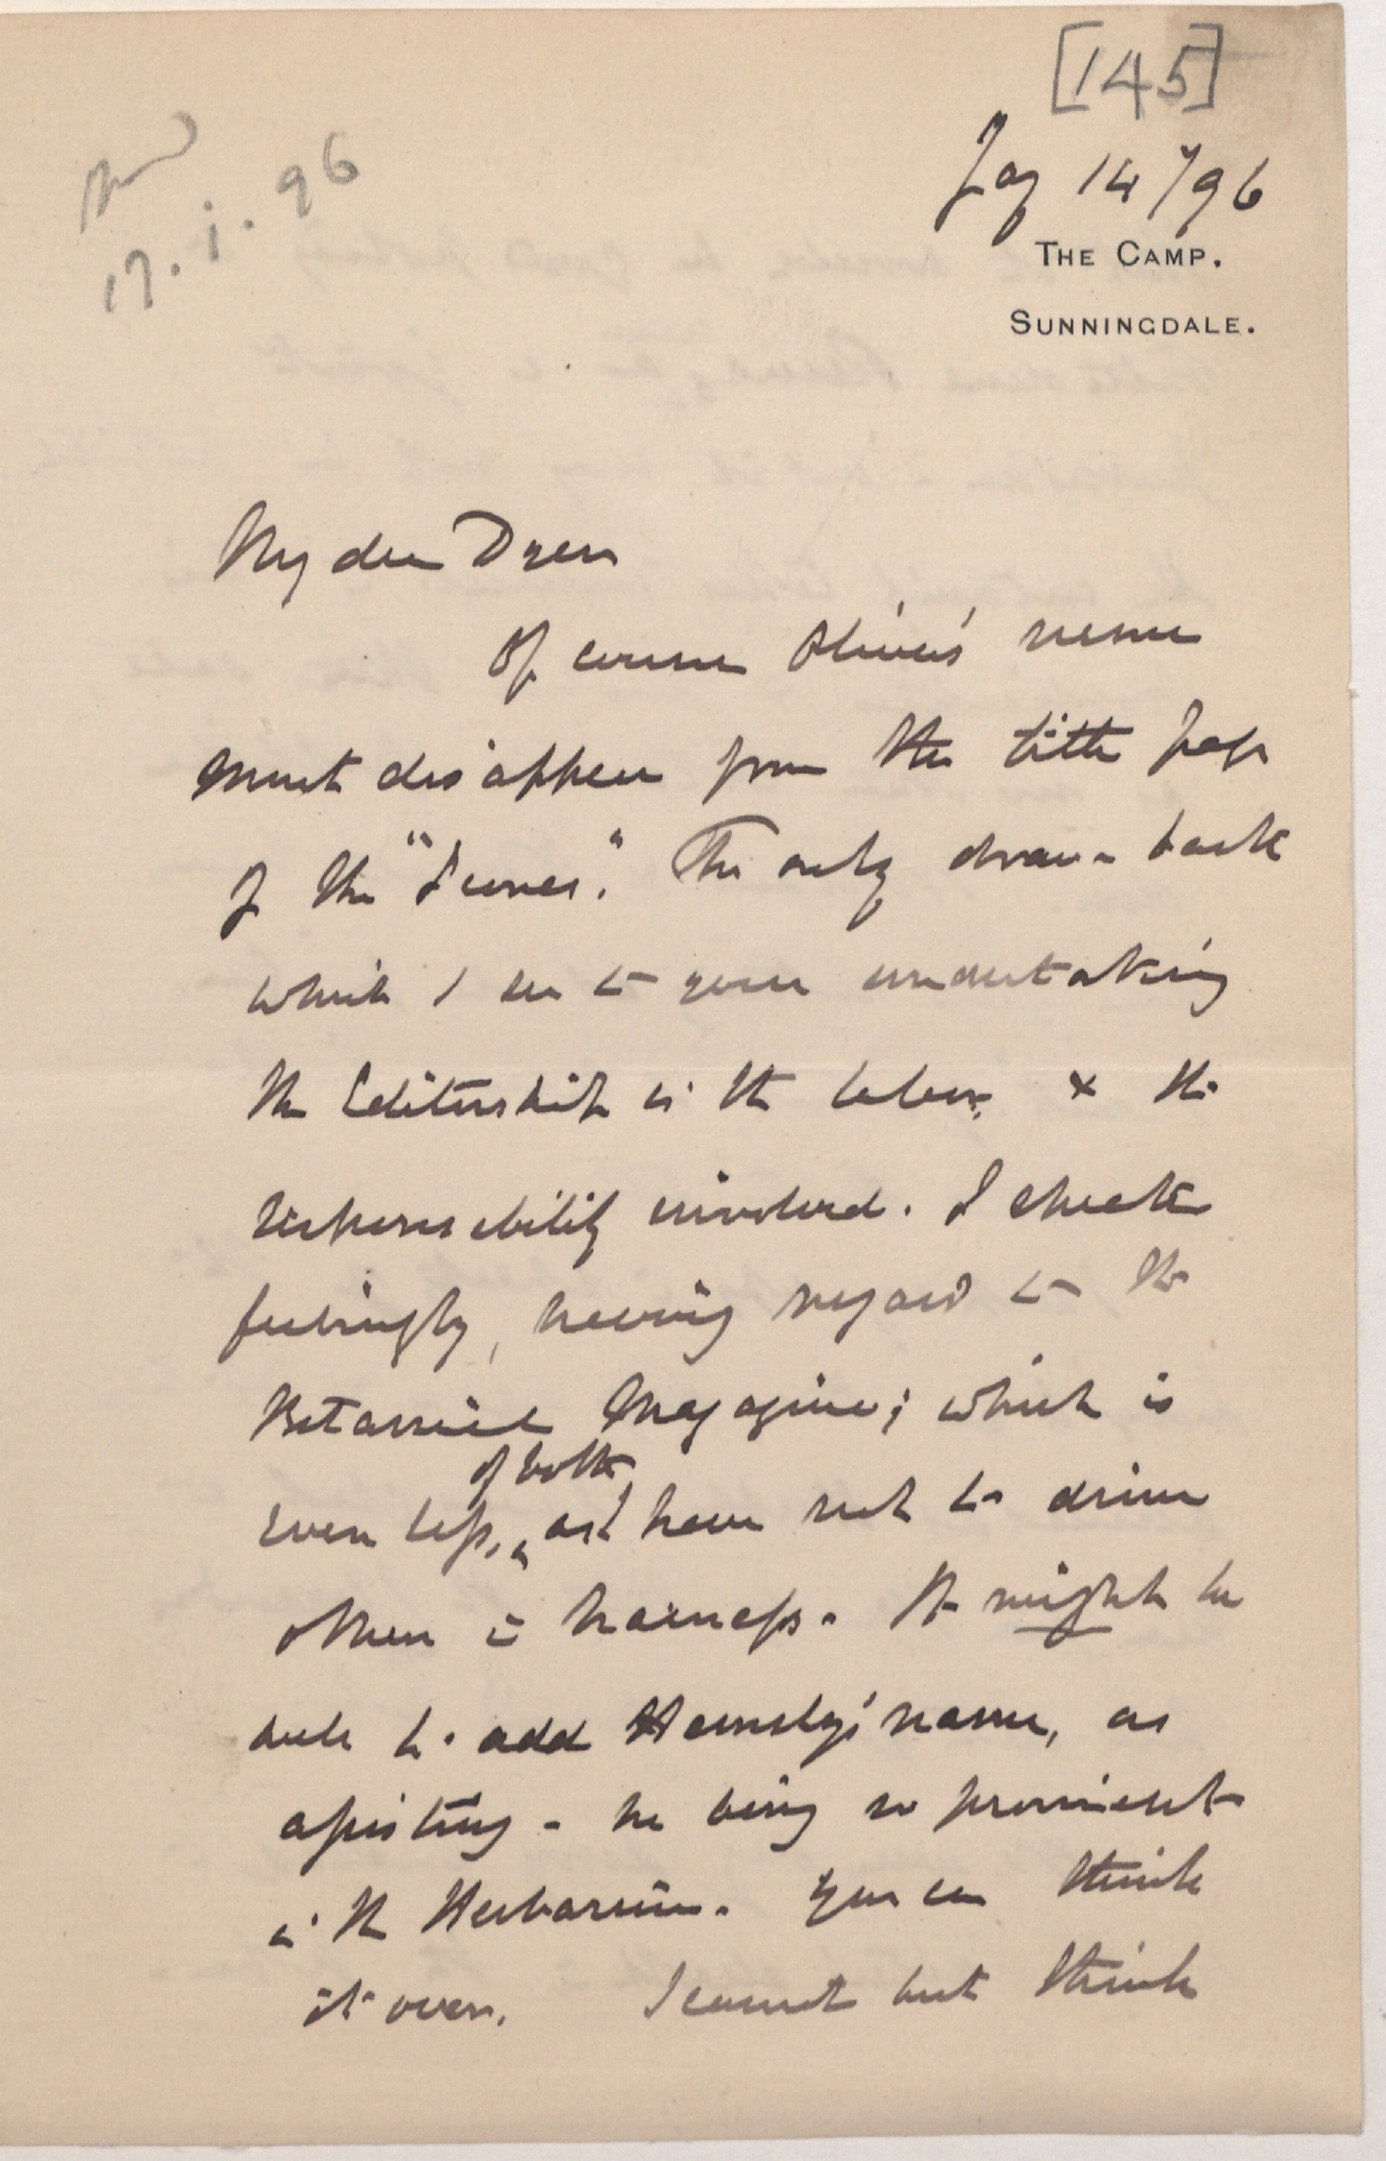 [145]
Jay 14/96
17.1.96
THE CAMP.
SUNNINGDALE.
My dear Dyer
Of course Oliver's name
must disappear from the title page
of the "Icones." The only draw-back
which I see to your undertaking
the Editorship is the labor, & the
responsibility involved. I speak
feelingly, having regard to the
Botanical Magazine; which is
of both
even less, as I have not to drive
others in harness. It might be
well to add Hemsley's name, as
assisting - he being so prominent
in the Herbarium. You can think
it over. I cannot but think